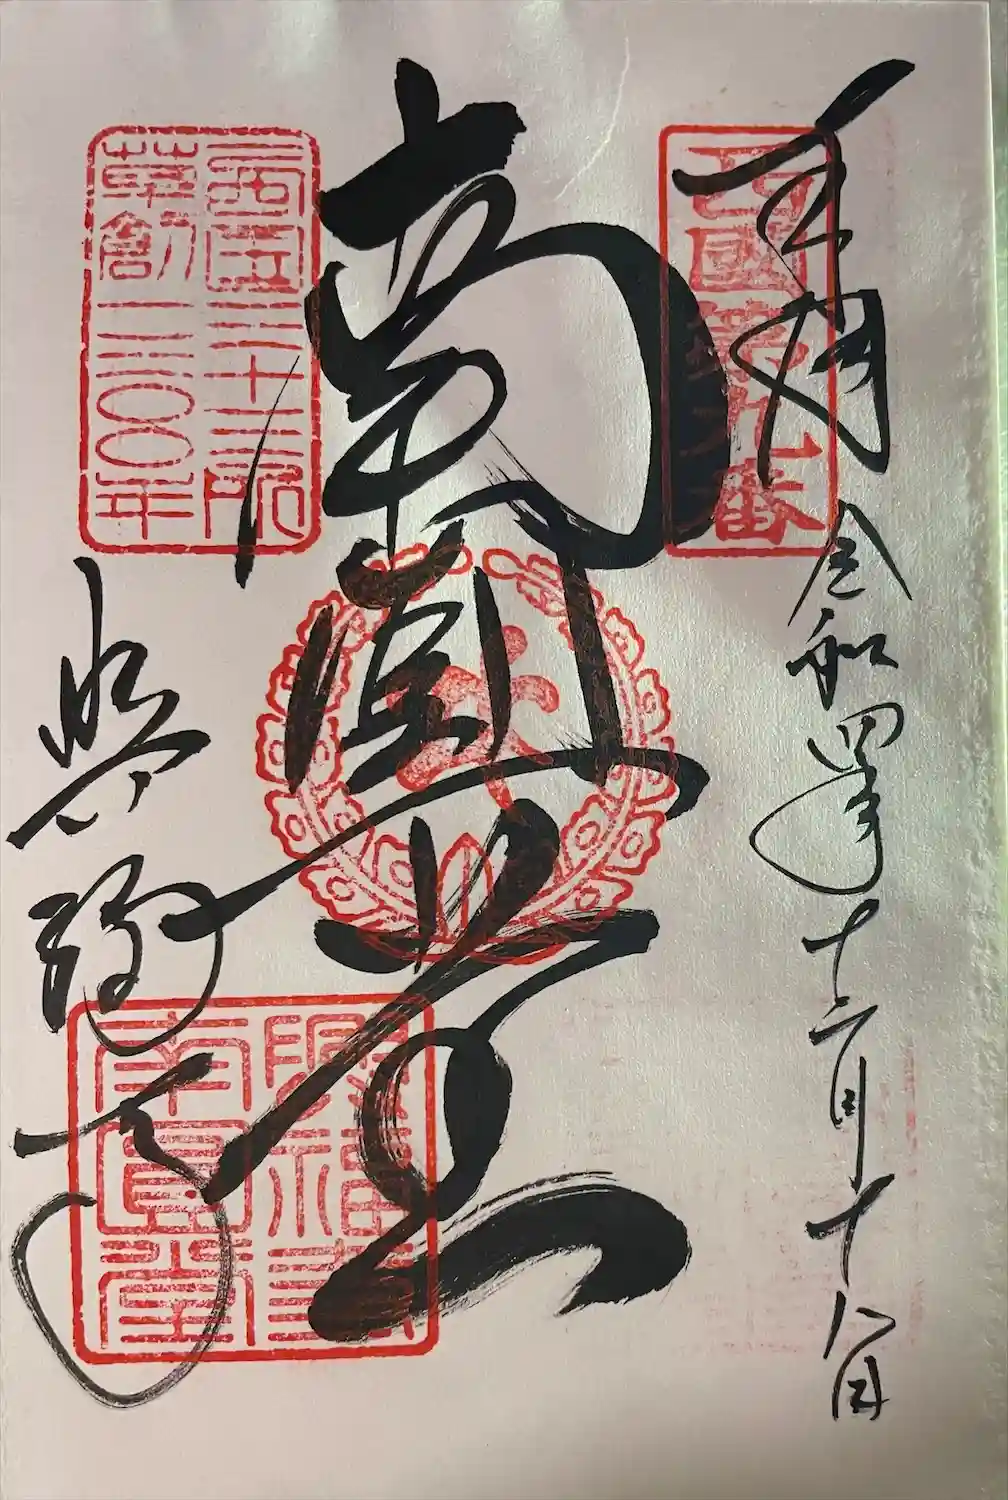 奉拝
令和四年十二月十八日
西国第九番
南圓堂
西国三十三所
草創一三〇〇年
興福寺
南圓堂
興福寺